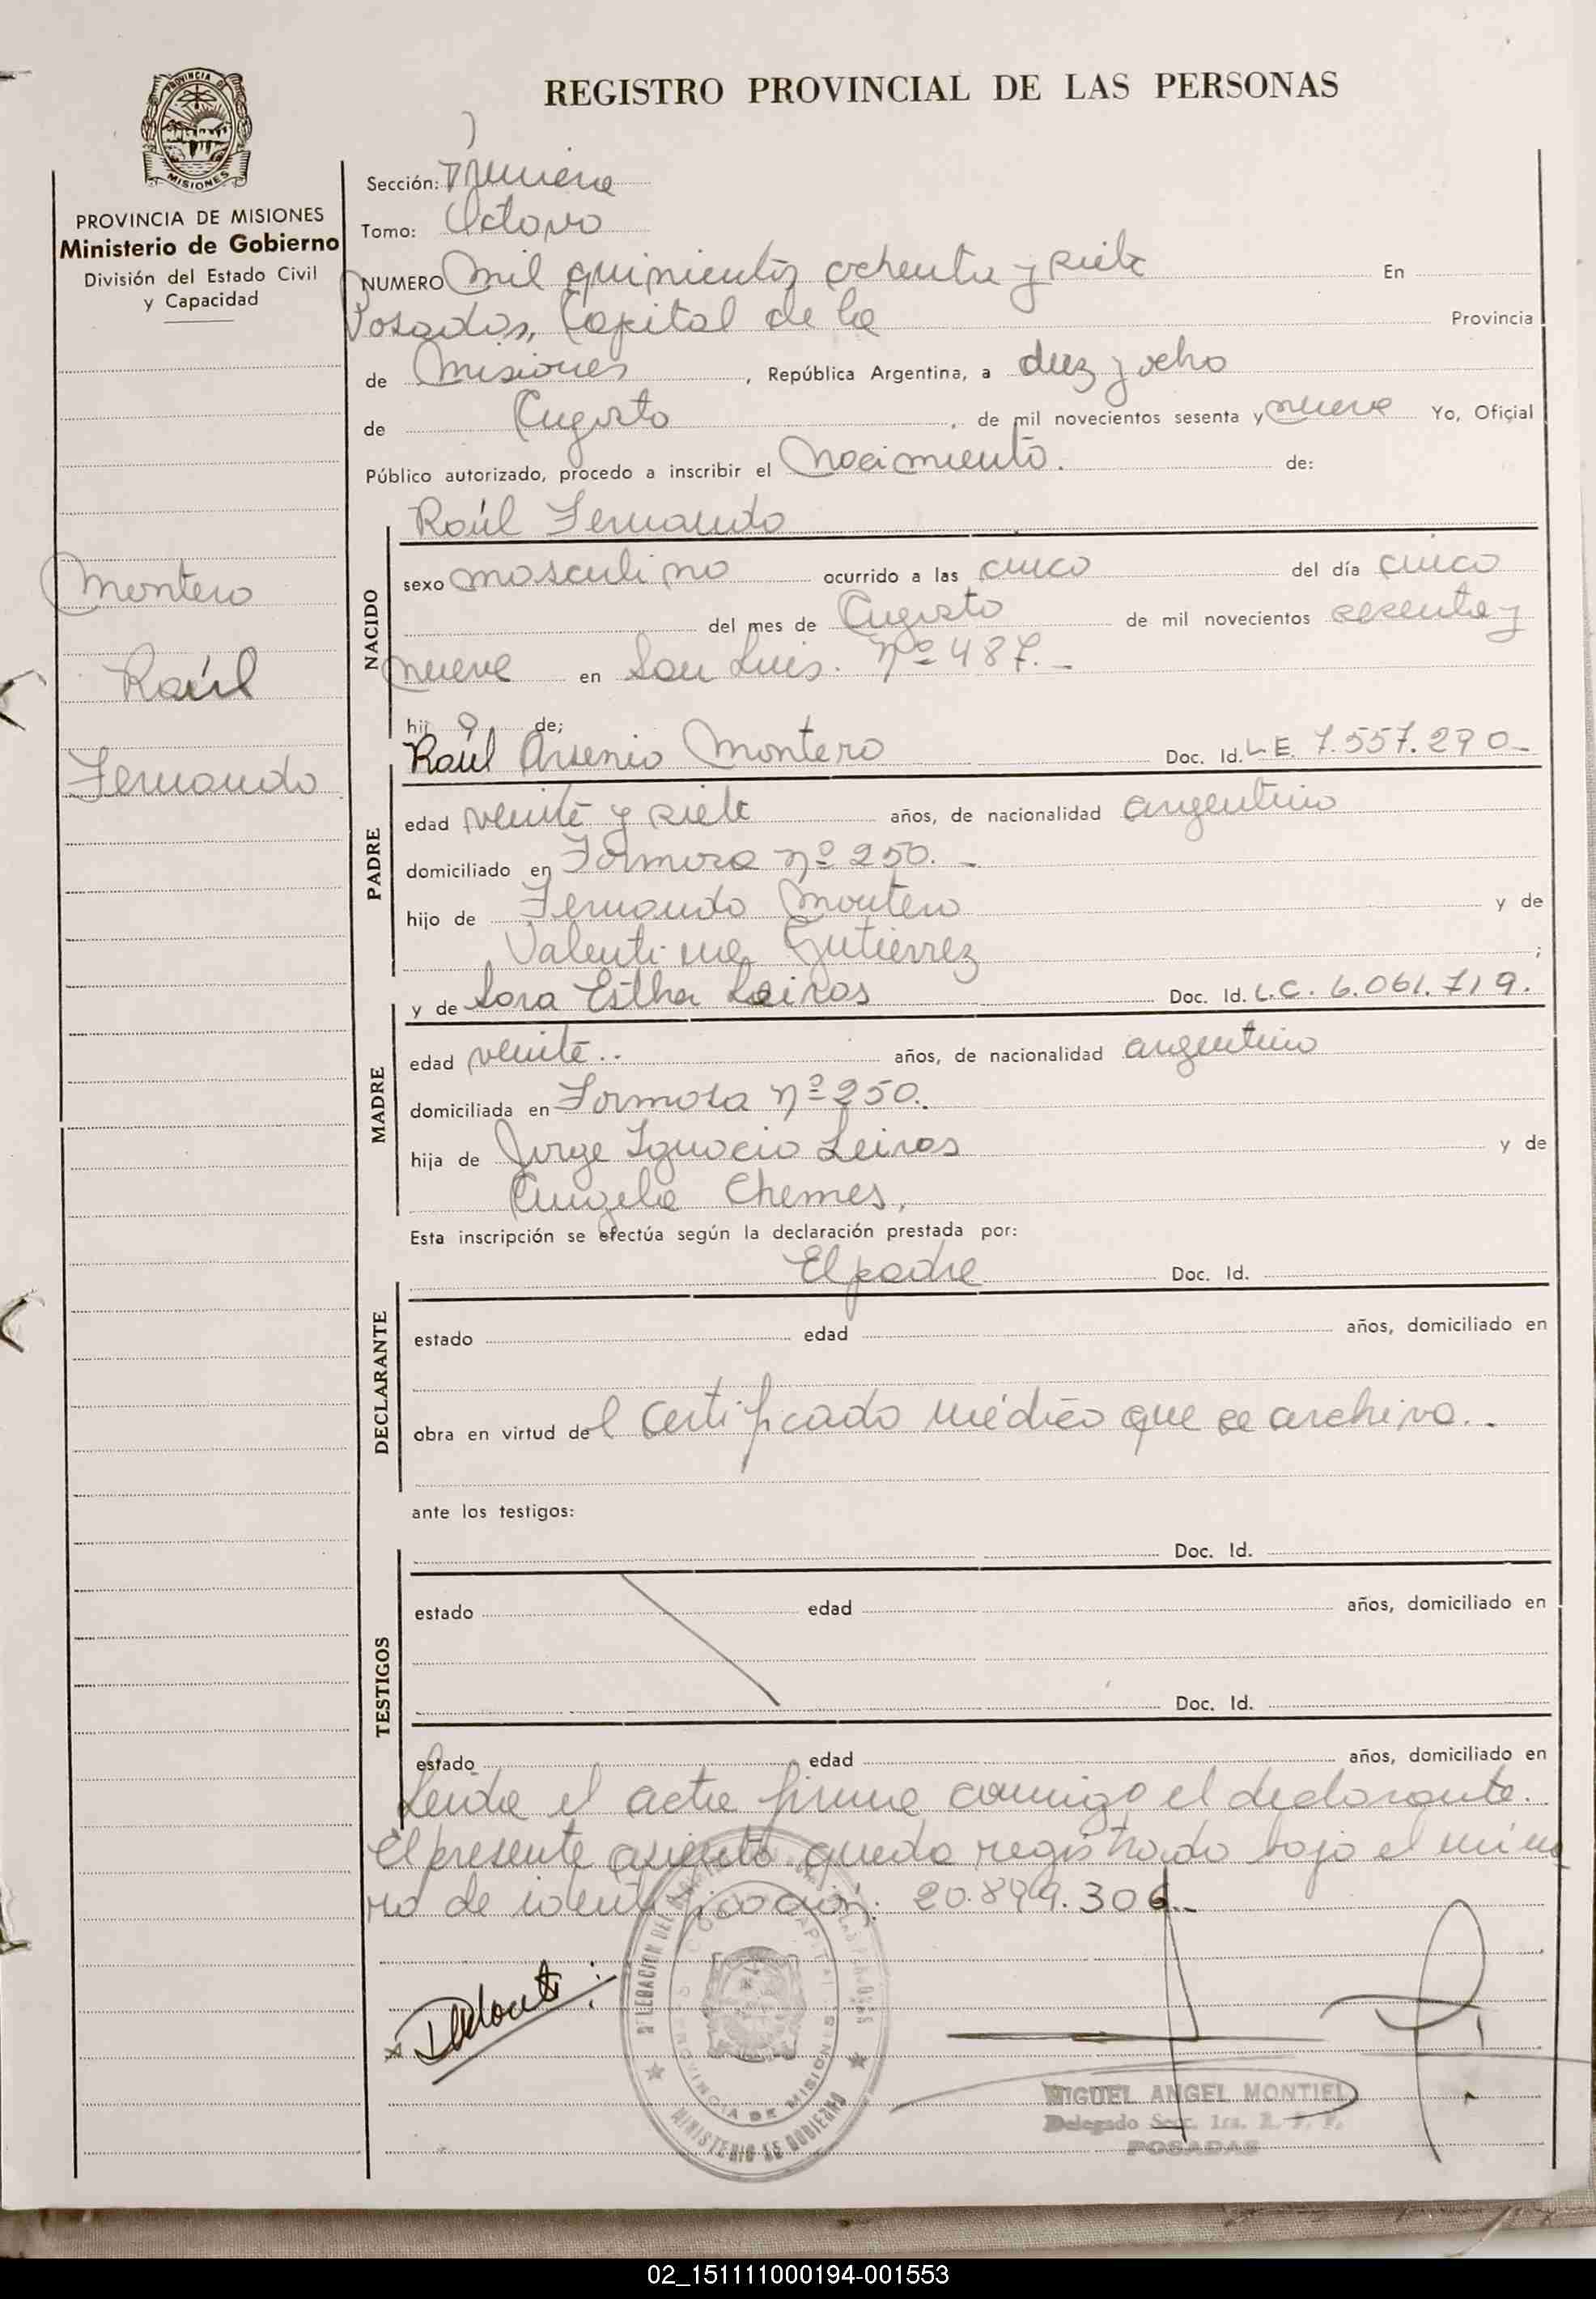 REGISTRO PROVINCIAL DE LAS PERSONAS
PROVINCIA DE
MISIONES
PROVINCIA DE MISIONES
Ministerio de Gobierno
División del Estado Civil
y Capacidad
Montero
Raúl
Fernando
Sección: Primera
Tomo: Octavo
NUMERO Mil quinientos ochenta y siete En
Posadas, Capital de la Provincia
de Misiones, República Argentina, a diez y ocho
de Agosto, de mil novecientos sesenta y nueve Yo, Oficial
Público autorizado, procedo a inscribir el Nacimiento. de:
NACIDO
Raúl Fernando
sexo masculino ocurrido a las cinco del día cinco
del mes de Agosto de mil novecientos sesenta y
nueve en San Luis. Nº 487.-
hij o de;
Raúl Arsenio Montero Doc. Id. L.E. 7.557.290-
PADRE
edad veinte y siete años, de nacionalidad argentino
domiciliado en Formosa nº 250.-
hijo de Fernando Montero y de
Valentina Gutiérrez ;
y de Sara Esther Leiras Doc. Id. L.C. 6.061.719.
MADRE
edad veinte.. años, de nacionalidad argentina
domiciliada en Formosa nº 250.
hija de Jorge Ignacio Leiras y de
Angela Chemes,
Esta inscripción se efectúa según la declaración prestada por:
El padre Doc. Id.
DECLARANTE
estado edad años, domiciliado en
obra en virtud del certificado médico que se archiva..
ante los testigos:
Doc. Id.
TESTIGOS
estado edad años, domiciliado en
Doc. Id.
estado edad años, domiciliado en
Leida el acta firma conmigo el declarante.
El presente asiento queda registrado bajo el núme
ro de identificación: 20.899.306.-
PROVINCIA DE MISIONES
MINISTERIO DE GOBIERNO
MIGUEL ANGEL MONTIEL
Delegado Secc. 1ra. R. P. P.
POSADAS
02_151111000194-001553